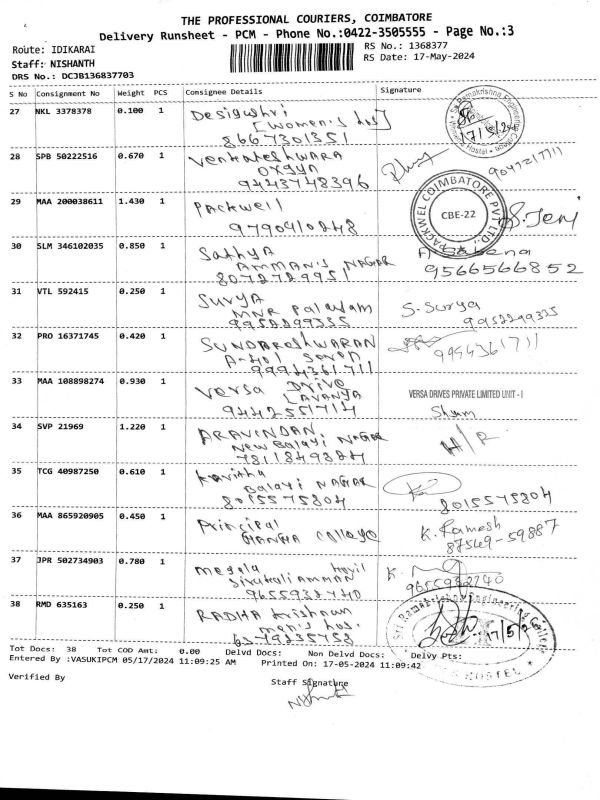 THE PROFESSIONAL COURIERS, COIMBATORE
Delivery Runsheet - PCM - Phone No.:0422-3505555 - Page No.:3
Route: IDIKARAI
RS No.: 1368377
Staff: NISHANTH
RS Date: 17-May-2024
DRS No.: DC3B136837703
S No Consignment No Weight PCS Consignee Details Signature
27 NKL 3378378 0.100 1 Desigushri
[Women's hos]
8667301351
28 SPB 50222516 0.670 1 Venkateshwara
oxgyn
9443748396
9047217711
29 MAA 200038611 1.430 1 Packwell
9790410248
PACKWEL COIMBATORE PVT LTD.,
CBE-22
30 SLM 346102035 0.850 1 Sathya
Amman's Nagar
8072729951
9566566852
31 VTL 592415 0.250 1 Surya
MNR Palayam
9952299335
S. Surya
9952299335
32 PRO 16371745 0.420 1 Sundareshwaran
A-401 Seven
9994361711
9994361711
33 MAA 108898274 0.930 1 Versa Drive
Lavanya
9442551714
VERSA DRIVES PRIVATE LIMITED UNIT - I
Shyam
34 SVP 21969 1.220 1 Aravindan,
New Balaji Nagar
7811849824
H/R
35 TCG 40987250 0.610 1 Kavitha
Balaji Nagar
8015575804
8015575804
36 MAA 865920905 0.450 1 Principal
Hanha College
K. Ramesh
87549-59887
37 JPR 502734903 0.780 1 Megala Kovil
Sivakali Amman
9655932740
9655932740
38 RMD 635163 0.250 1 Radha Krishnan
Men's hos.
6379235758
Sri Ramakrishna Engineering College
17/5/2
HOSTEL
Tot Docs: 38 Tot COD Amt: 0.00 Delvd Docs: Non Delvd Docs: Delvy Pts:
Entered By :VASUKIPCM 05/17/2024 11:09:25 AM Printed On: 17-05-2024 11:09:42
Verified By
Staff Signature